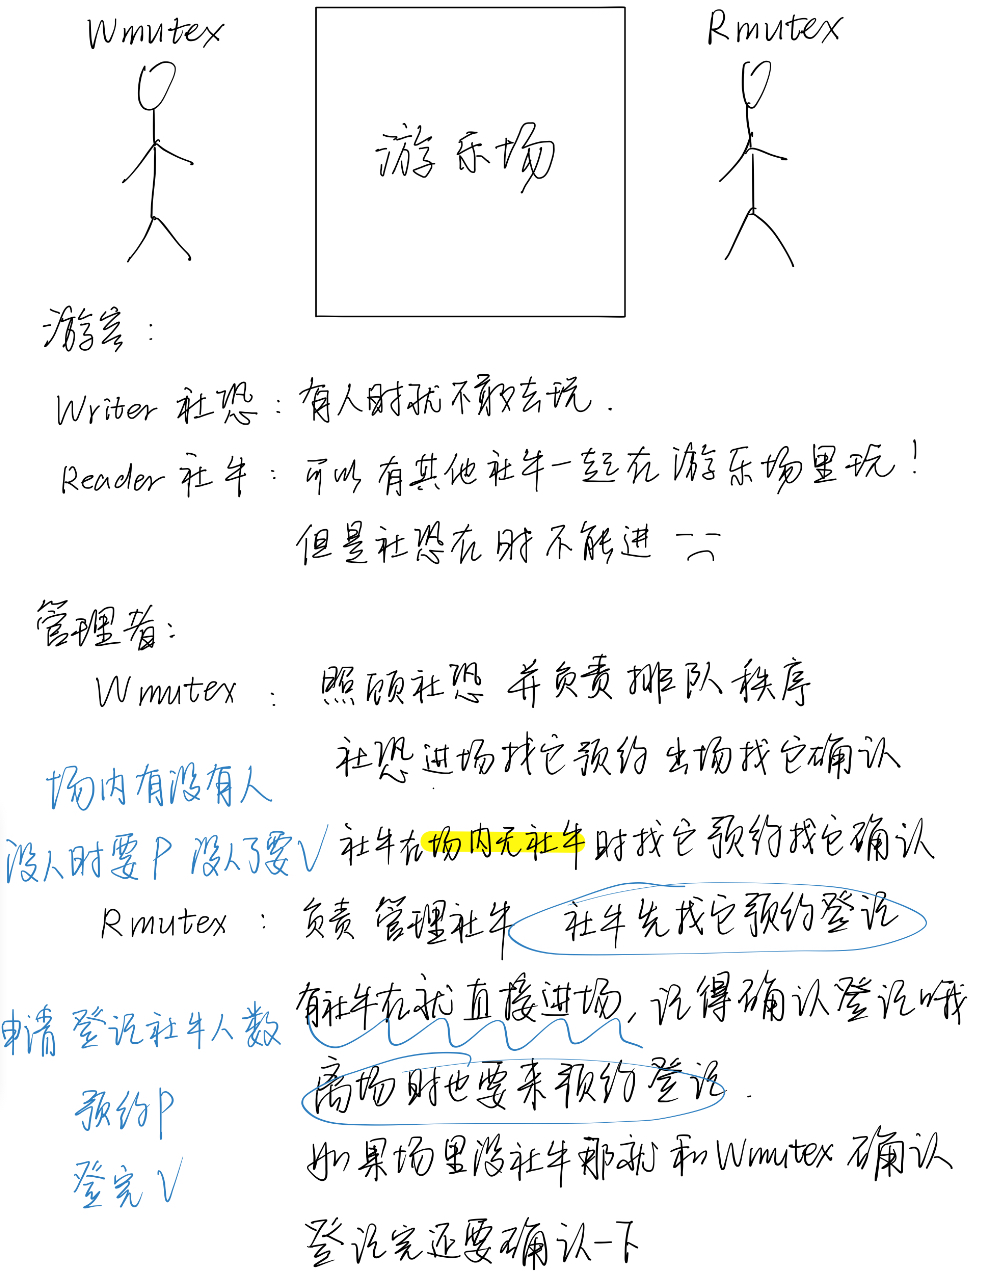 Wmutex
Rmutex
游乐场
游客:
Writer 社恐: 有人时就不敢去玩.
Reader 社牛: 可以有其他社牛一起在游乐场里玩!
但是社恐在时不能进
管理者:
Wmutex: 照顾社恐 并负责排队秩序
社恐进场找它预约 出场找它确认
场内有没有人
没人时要P 没人了要V
社牛在场内无社牛时找它预约找它确认
Rmutex: 负责管理社牛 社牛先找它预约登记
有社牛在就直接进场, 记得确认登记哦
申请登记社牛人数
离场时也要来预约登记.
预约P
如果场里没社牛那就和Wmutex确认
登完V
登记完还要确认一下